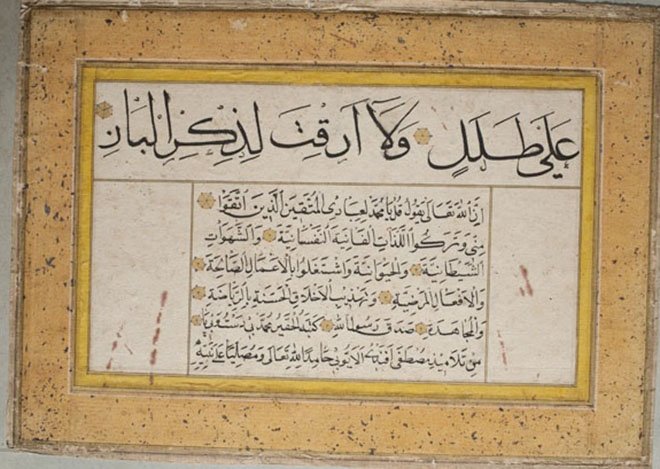 عَلَى طَلَلٍ وَلَا أَرِقْتَ لِذِكْرِ الْبَانِ
إِنَّ اللهَ تَعَالَى يَقُولُ قُلْ يَا مُحَمَّدُ لِعِبَادِيَ الْمُتَّقِينَ الَّذِينَ اتَّقَوْا
مِنِّي وَتَرَكُوا اللَّذَّاتِ الْفَانِيَةَ النَّفْسَانِيَّةَ وَالشَّهَوَاتِ
الشَّيْطَانِيَّةَ وَالْحَيَوَانِيَّةَ وَاشْتَغَلُوا بِالْأَعْمَالِ الصَّالِحَةِ
وَالْأَفْعَالِ الْمَرْضِيَّةِ وَتَهْذِيبِ الْأَخْلَاقِ الْحَسَنَةِ بِالرِّيَاضَةِ
وَالْمُجَاهَدَةِ صَدَقَ رَسُولُ اللهِ كَتَبَهُ الْحَقِيرُ مُحَمَّد
مِنْ تَلَامِيذِ مُصْطَفَى الْأَيُّوبِي حَامِدًا لِلّٰهِ تَعَالَى وَمُصَلِّيًا عَلَى نَبِيِّهِ